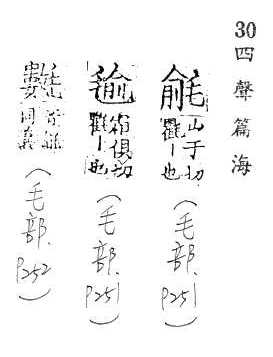 30四聲篇海
毹山于切氍｜也(毛部.P251)
毺霜俱切氍｜也(毛部.P251)
氀同義(毛部.P252)